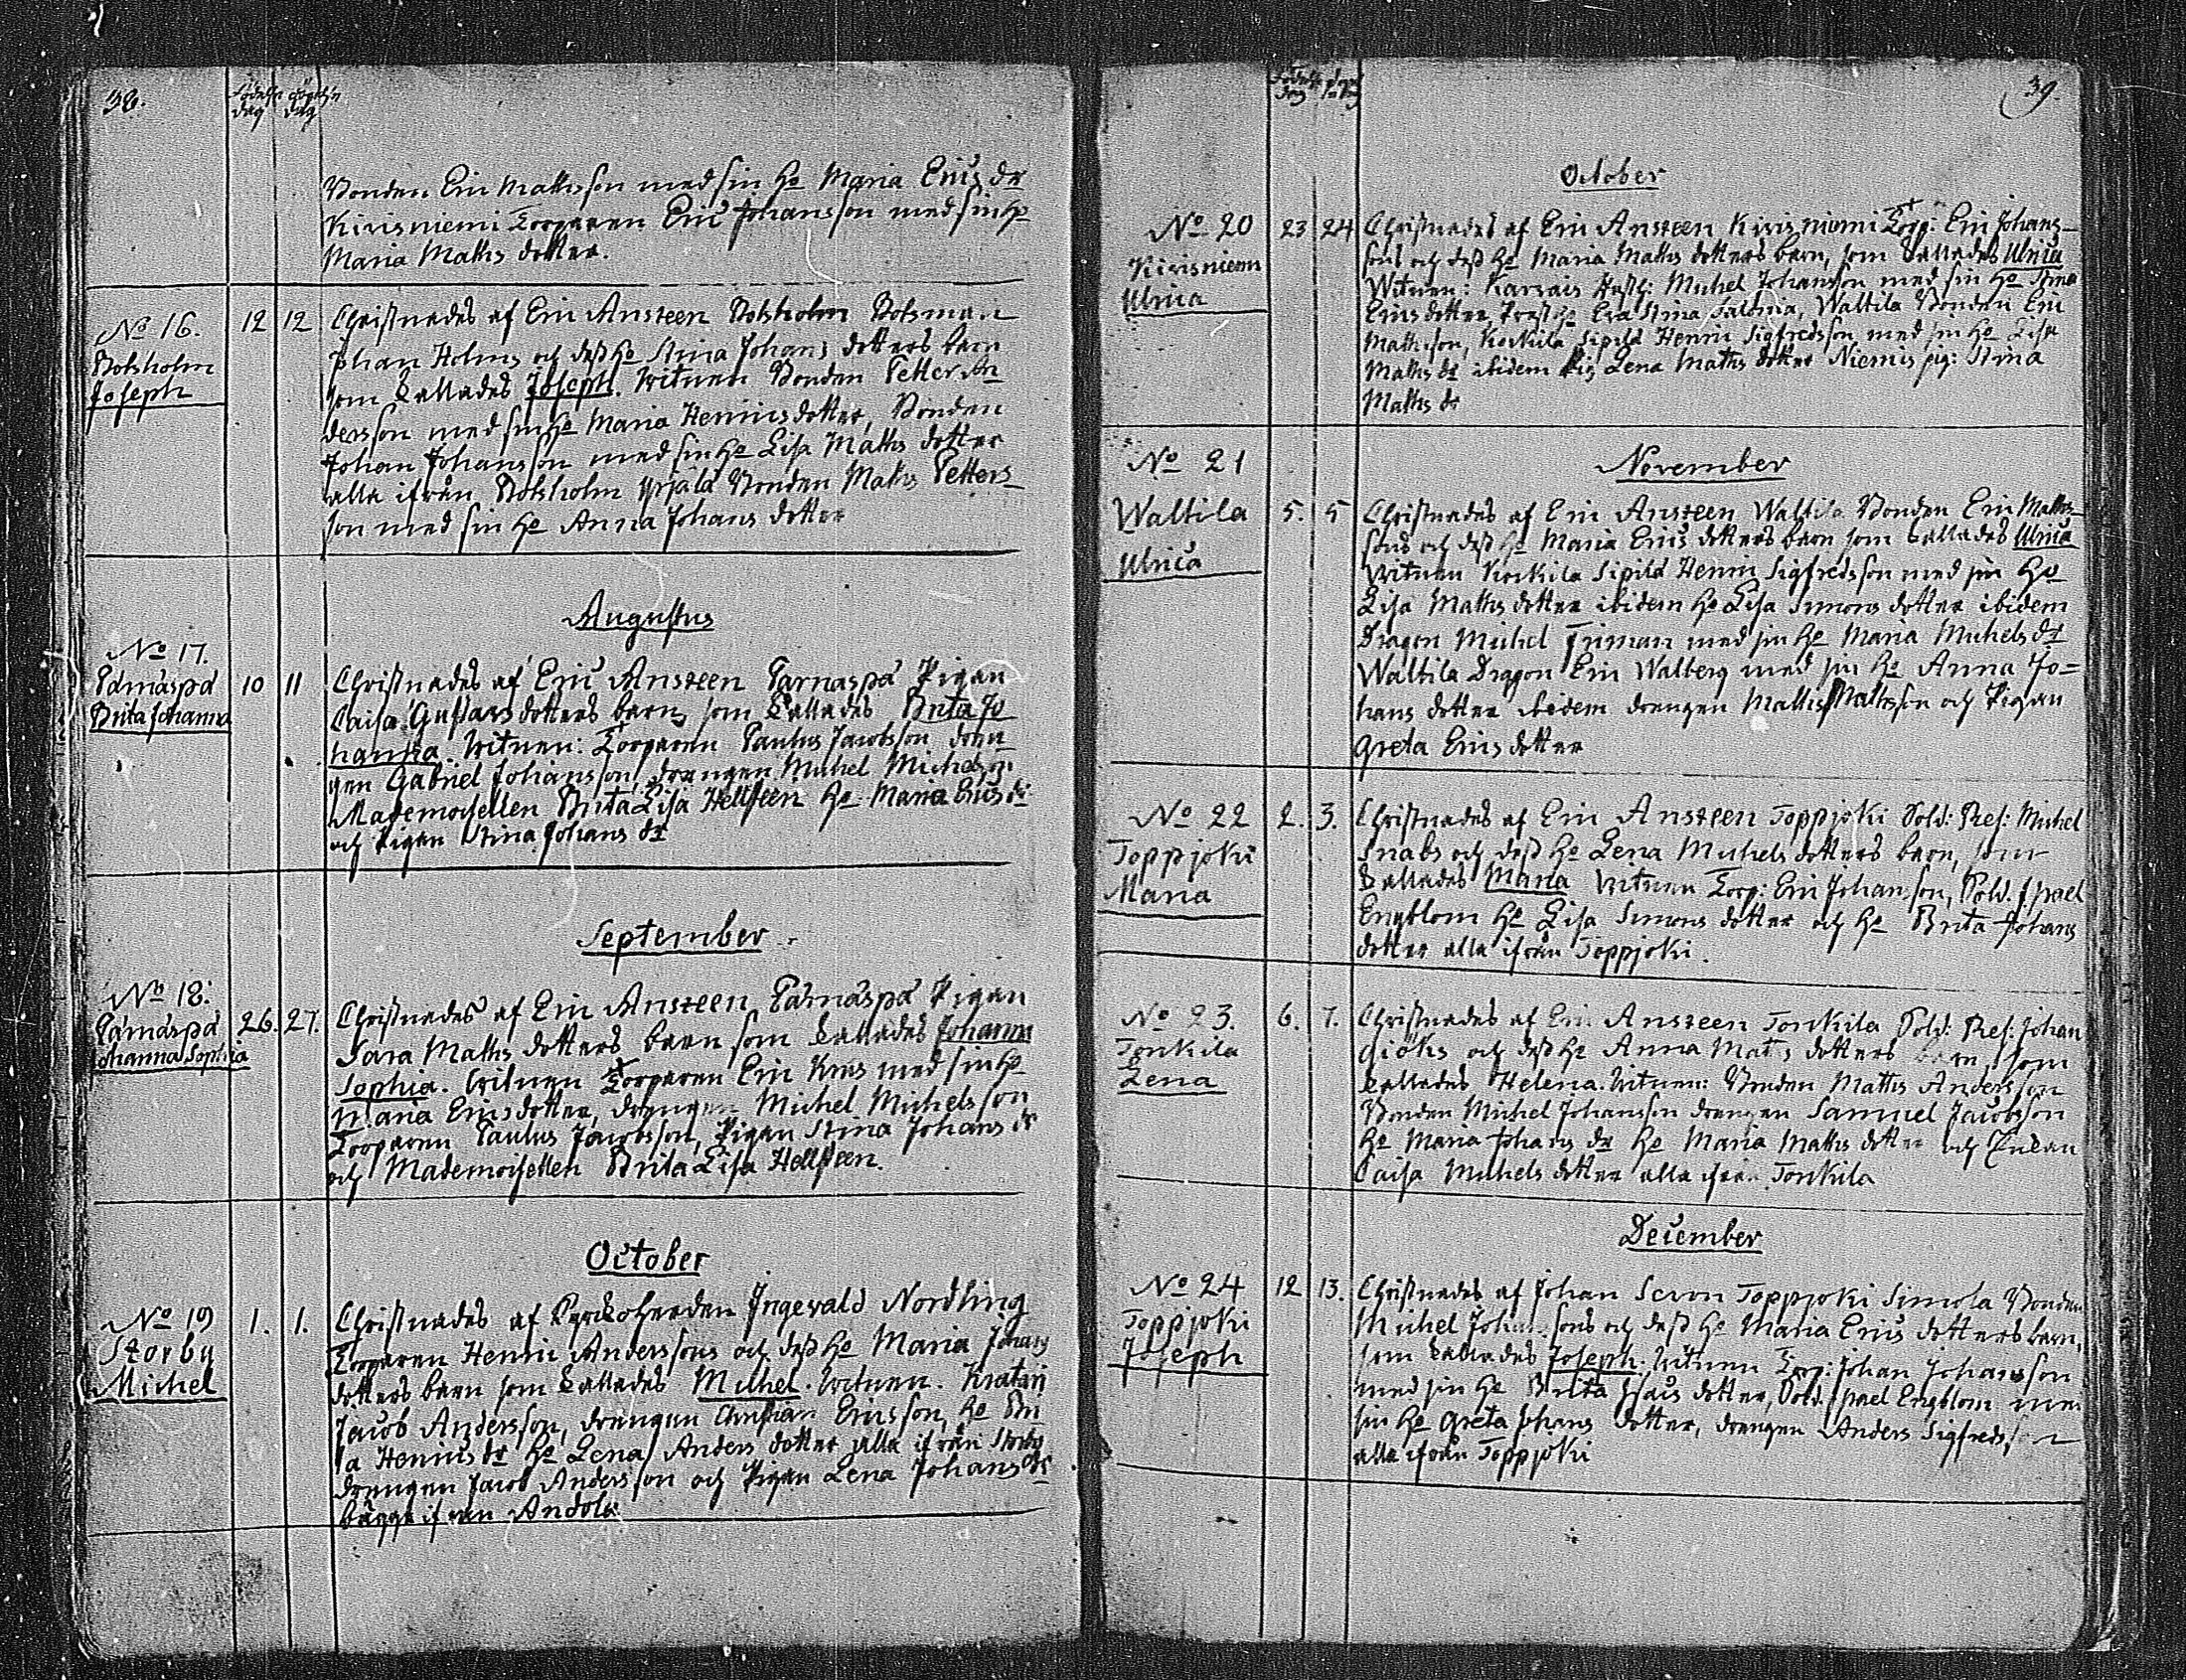 38.
Födelse dag
döpelse dag
Bonden Eric Mathsson med sin Ho Maria Erics dr
Kirisniemi Torparen Eric Johansson med sin Ho
Maria Maths dotter.
No 16.
Bolsholm
Joseph
12 12
Christnades af Eric Ansteen Bolsholm Botsman
Johan Holms och dess Ho Stina Johans dotters barn
som kallades Joseph. Witnen Bonden Petter An
dersson med sin Ho Maria Henrics dotter, Bonden
Johan Johansson med sin Ho Lisa Maths dotter
alla ifrån Bolsholm Yrjälä Bonden Maths Petters
son med sin Ho Anna Johans dotter
Augustus
No 17.
Pärnäspä
Brita Johanna
10 11
Christnades af Eric Ansteen Pärnäspä Pigan
Caisa Gustavs dotters barn, som kallades Brita Jo
hanna. Witnen: Torparen Paulus Jacobsson dren
gen Gabriel Johansson, drengen Michel Michelsson
Mademoisellen Brita Lisa Hellsteen Ho Maria Erics dr
och Pigan Stina Johans dr
September
No 18.
Pärnäspä
Johanna Sophia
26. 27.
Christnades af Eric Ansteen Pärnäspä Pigan
Sara Maths dotters barn som kallades Johanna
Sophia. Witnen Torparen Eric Krus med sin Ho
Maria Erics dotter, drengen Michel Michelsson
Torparen Paulus Jacobsson, Pigan Stina Johans dr
och Mademoisellen Brita Lisa Hellsteen.
October
No 19
Storby
Michel
1. 1.
Christnades af Kyrckoherden Ingevald Nordling
Torparen Henric Anderssons och dess Ho Maria Johans
dotters barn som kallades Michel. Witnen.
Jacob Andersson, drengen Christian Ericsson, Ho Bri
ta Henrics dr Ho Lena Anders dotter alla ifrån Storby
drengen Jacob Andersson och Pigan Lena Johans dr
bägge ifrån Andola
39.
Födelse dag
October
No 20
Kirisniemi
Ulrica
23 24
Christnades af Eric Ansteen Kirisniemi Torp: Eric Johans
sons och dess Ho Maria Maths dotters barn, som kallades Ulrica
Witnen: Karsais Michel Johansson med sin Ho Stina
Erics dotter Eva Stina Waltila Bonden Eric
Mathsson, Kockila Sipilä Henric Sigfredsson med sin Ho Lisa
Maths dr ibidem Pig Lena Maths dotter Niemis pig: Stina
Maths dr
November
No 21
Waltila
Ulrica
5. 5
Christnades af Eric Ansteen Waltila Bonden Eric Maths
sons och dess Ho Maria Erics dotters barn som kallades Ulrica
Witnen Kockila Sipilä Henric Sigfredsson med sin Ho
Lisa Maths dotter ibidem Ho Lisa Simons dotter ibidem
Dragon Michel Friman med sin Ho Maria Michels dr
Waltila Dragon Eric Walberg med sin Ho Anna Jo=
hans dotter ibidem drengen Mattis Mathsson och Pigan
Greta Erics dotter
No 22
Toppjoki
Maria
2. 3.
Christnades af Eric Ansteen Toppjoki Sold: Ref: Michel
Snabs och dess Ho Lena Michels dotters barn, som
kallades Maria Witnen Torp: Eric Johansson, Sold. Israel
Engblom Ho Lisa Simons dotter och Ho Brita Johans
dotter alla ifrån Toppjoki.
No 23.
Torkila
Lena
6. 7.
Christnades af Eric Ansteen Torkila Sold: Ref: Johan
Giöks och dess Ho Anna Maths dotters barn, som
kallades Helena. Witnen: Bonden Matts Andersson
Bonden Michel Johansson drengen Samuel Jacobsson
Ho Maria Johans dr Ho Maria Maths dotter och Enkan
Caisa Michels dotter alla ifrån Torkila
December
No 24
Toppjoki
Joseph
12 13.
Christnades af Johan Toppjoki Simola Bonden
Michel Johanssons och dess Ho Maria Erics dotters barn,
som kallades Joseph. Witnen Torp: Johan Johansson
med sin Ho Brita Isacs dotter, Sold. Israel Engblom med
sin Ho Greta Johans dotter, drengen Anders Sigfredsson
alla ifrån Toppjoki